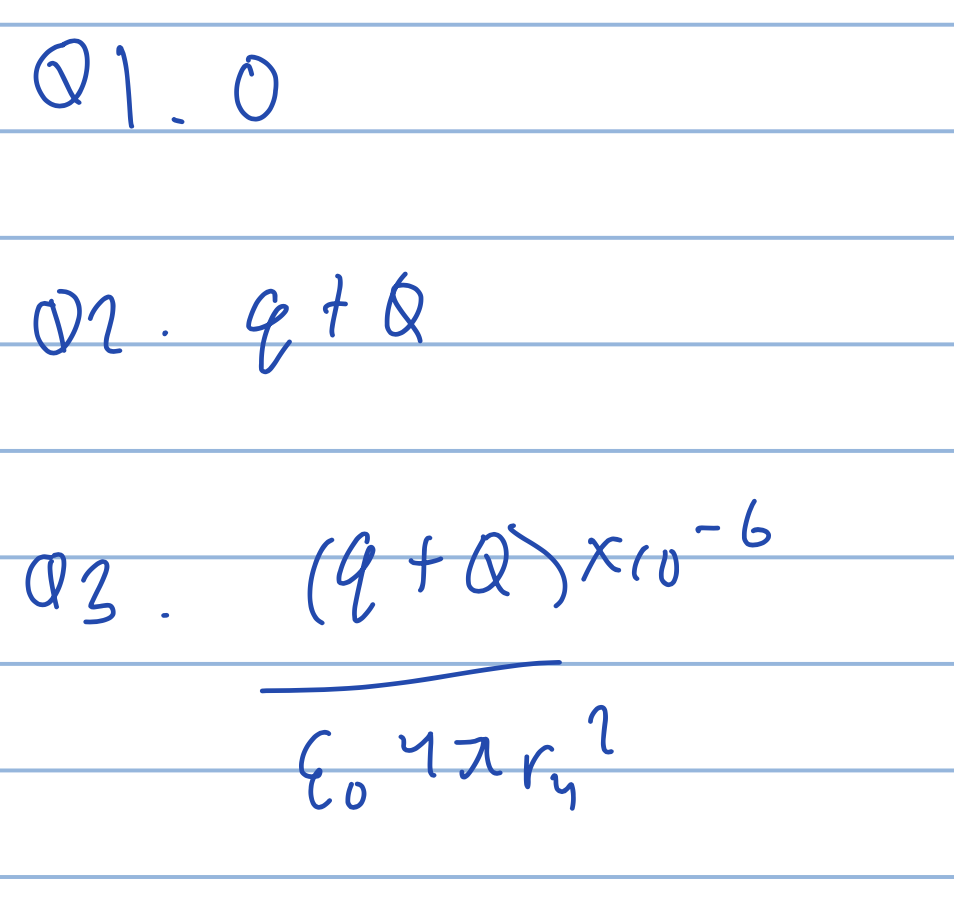 Q1. 0
Q2. q + Q
Q3. (q + Q) x10⁻⁶
ε₀ 4 π r₄²